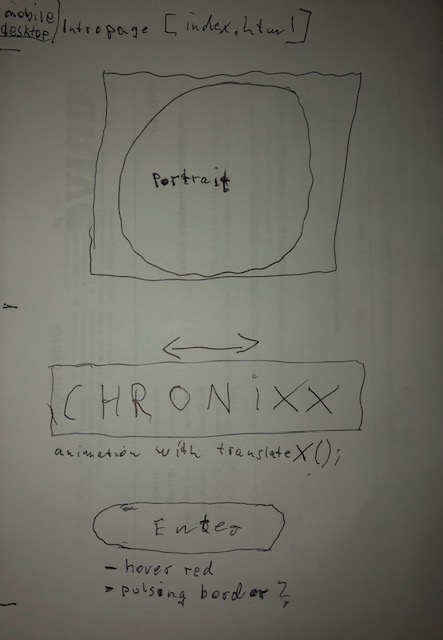 mobile
desktop / Intropage [index.html]
Portrait
CHRONiXX
animation with translateX();
Enter
- hover red
- pulsing border?